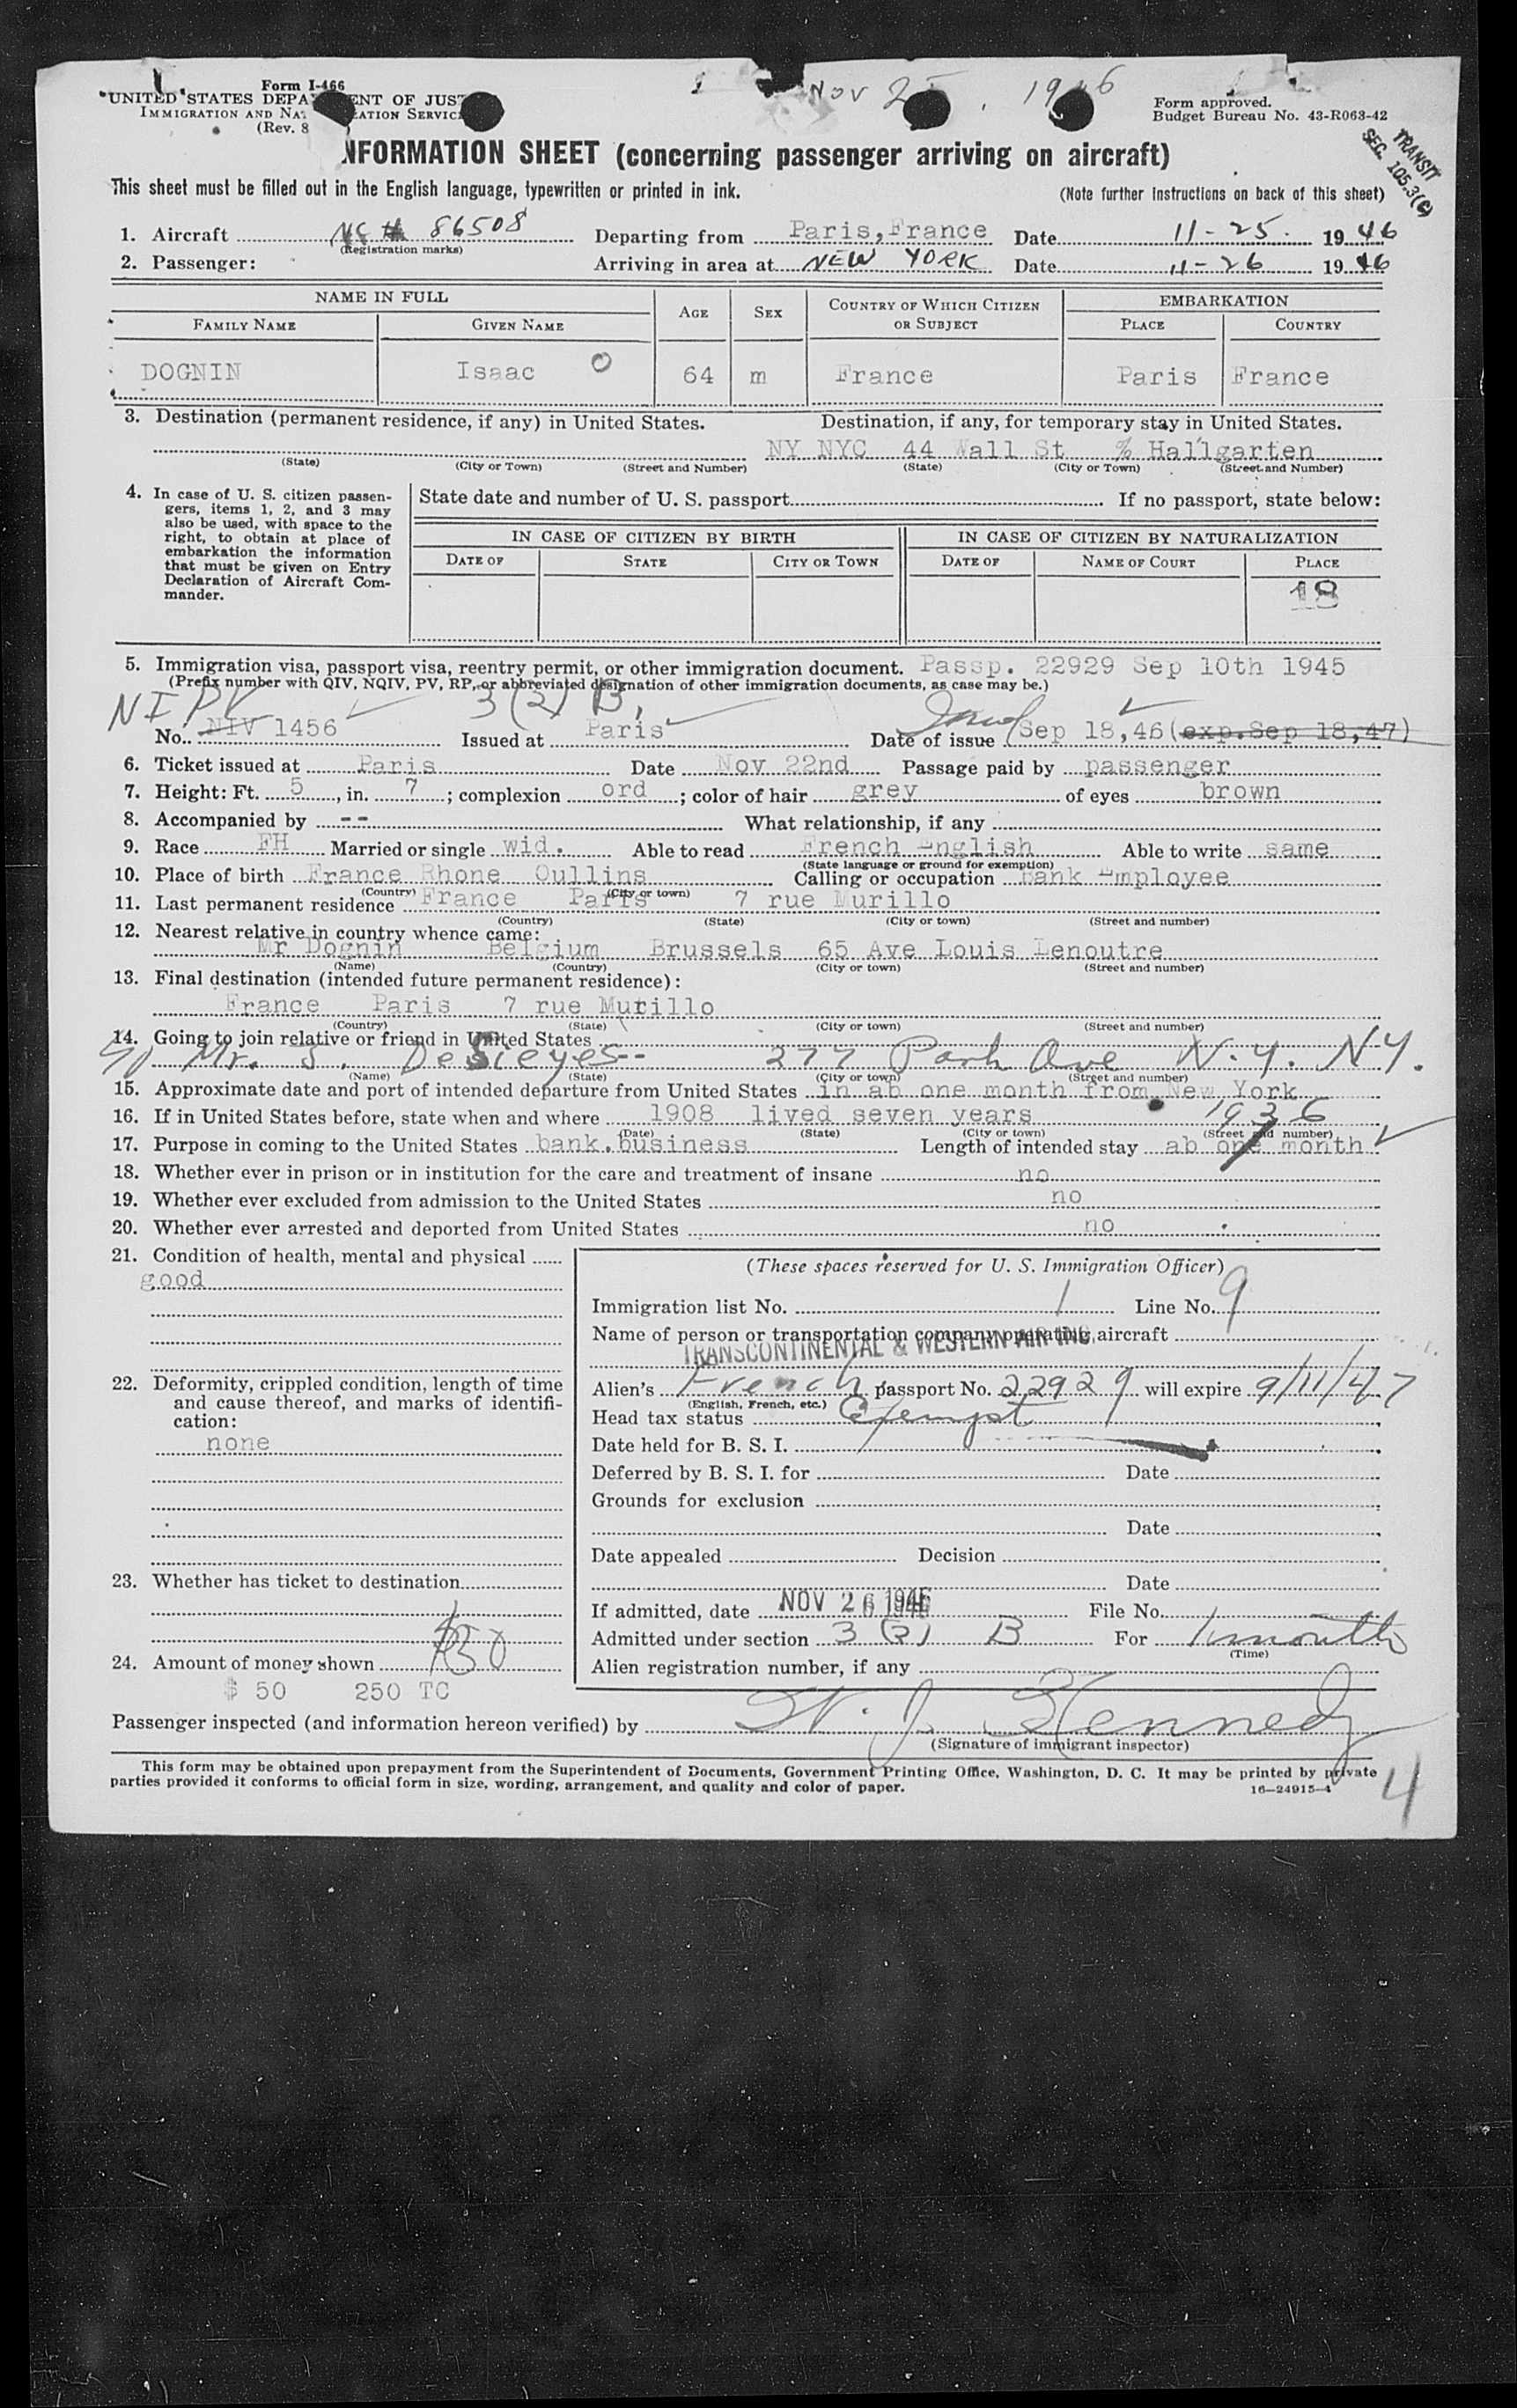 Form I-466
UNITED STATES DEPA ENT OF JUST
IMMIGRATION AND NAT ZATION SERVIC
(Rev. 8
NOV 2 , 19 6
Form approved.
Budget Bureau No. 43-R063-42
TRANSIT
SEC. 105.3(C)
NFORMATION SHEET (concerning passenger arriving on aircraft)
This sheet must be filled out in the English language, typewritten or printed in ink. (Note further instructions on back of this sheet)
1. Aircraft NC # 86508 Departing from Paris, France Date 11-25. 1946
(Registration marks)
2. Passenger: Arriving in area at NEW YORK Date 11-26 1946
NAME IN FULL AGE SEX COUNTRY OF WHICH CITIZEN OR SUBJECT EMBARKATION
FAMILY NAME GIVEN NAME PLACE COUNTRY
DOGNIN Isaac 64 m France Paris France
3. Destination (permanent residence, if any) in United States. Destination, if any, for temporary stay in United States.
NY NYC 44 Wall St % Hallgarten
(State) (City or Town) (Street and Number) (State) (City or Town) (Street and Number)
4. In case of U. S. citizen passengers, items 1, 2, and 3 may also be used, with space to the right, to obtain at place of embarkation the information that must be given on Entry Declaration of Aircraft Commander.
State date and number of U. S. passport If no passport, state below:
IN CASE OF CITIZEN BY BIRTH IN CASE OF CITIZEN BY NATURALIZATION
DATE OF STATE CITY OR TOWN DATE OF NAME OF COURT PLACE
18
5. Immigration visa, passport visa, reentry permit, or other immigration document. Passp. 22929 Sep 10th 1945
(Prefix number with QIV, NQIV, PV, RP, or abbreviated designation of other immigration documents, as case may be.)
NIPV 3(2) B,
No. NIV 1456 Issued at Paris Date of issue (Sep 18,46(exp.Sep 18,47)
6. Ticket issued at Paris Date Nov 22nd Passage paid by passenger
7. Height: Ft. 5, in. 7; complexion ord; color of hair grey of eyes brown
8. Accompanied by -- What relationship, if any
9. Race FH Married or single wid. Able to read French English Able to write same
(State language or ground for exemption)
10. Place of birth France Rhone Oullins Calling or occupation Bank Employee
(Country) (City or town)
11. Last permanent residence France Paris 7 rue Murillo
(Country) (State) (City or town) (Street and number)
12. Nearest relative in country whence came:
Mr Dognin Belgium Brussels 65 Ave Louis Lenoutre
(Name) (Country) (City or town) (Street and number)
13. Final destination (intended future permanent residence):
France Paris 7 rue Murillo
(Country) (State) (City or town) (Street and number)
14. Going to join relative or friend in United States
Mr. J. DeSieyes-- 277 Park Ave N.Y. NY.
(Name) (State) (City or town) (Street and number)
15. Approximate date and port of intended departure from United States in ab one month from New York
16. If in United States before, state when and where 1908 lived seven years 1936
(Date) (State) (City or town) (Street and number)
17. Purpose in coming to the United States bank.business Length of intended stay ab one month
18. Whether ever in prison or in institution for the care and treatment of insane no
19. Whether ever excluded from admission to the United States no
20. Whether ever arrested and deported from United States no
21. Condition of health, mental and physical
good
22. Deformity, crippled condition, length of time and cause thereof, and marks of identification:
none
23. Whether has ticket to destination
$50
24. Amount of money shown
$ 50 250 TC
(These spaces reserved for U. S. Immigration Officer)
Immigration list No. 1 Line No. 9
Name of person or transportation company operating aircraft
TRANSCONTINENTAL & WESTERN AIR INC.
Alien's French passport No. 22929 will expire 9/11/47
(English, French, etc.)
Head tax status Exempt
Date held for B. S. I.
Deferred by B. S. I. for Date
Grounds for exclusion
Date
Date appealed Decision
Date
If admitted, date NOV 26 1946 File No.
Admitted under section 3 (2) B For 1 month
(Time)
Alien registration number, if any
Passenger inspected (and information hereon verified) by W. J. Kennedy
(Signature of immigrant inspector)
This form may be obtained upon prepayment from the Superintendent of Documents, Government Printing Office, Washington, D. C. It may be printed by private
parties provided it conforms to official form in size, wording, arrangement, and quality and color of paper. 16—24915-1
4